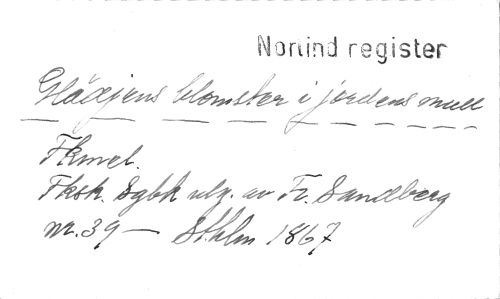 Norlind register
Glädjens blomster i jordens mull
Fkmel.
Fksk. Sgbk utg. av Fr. Sandberg
nr. 39 — Sthlm 1867